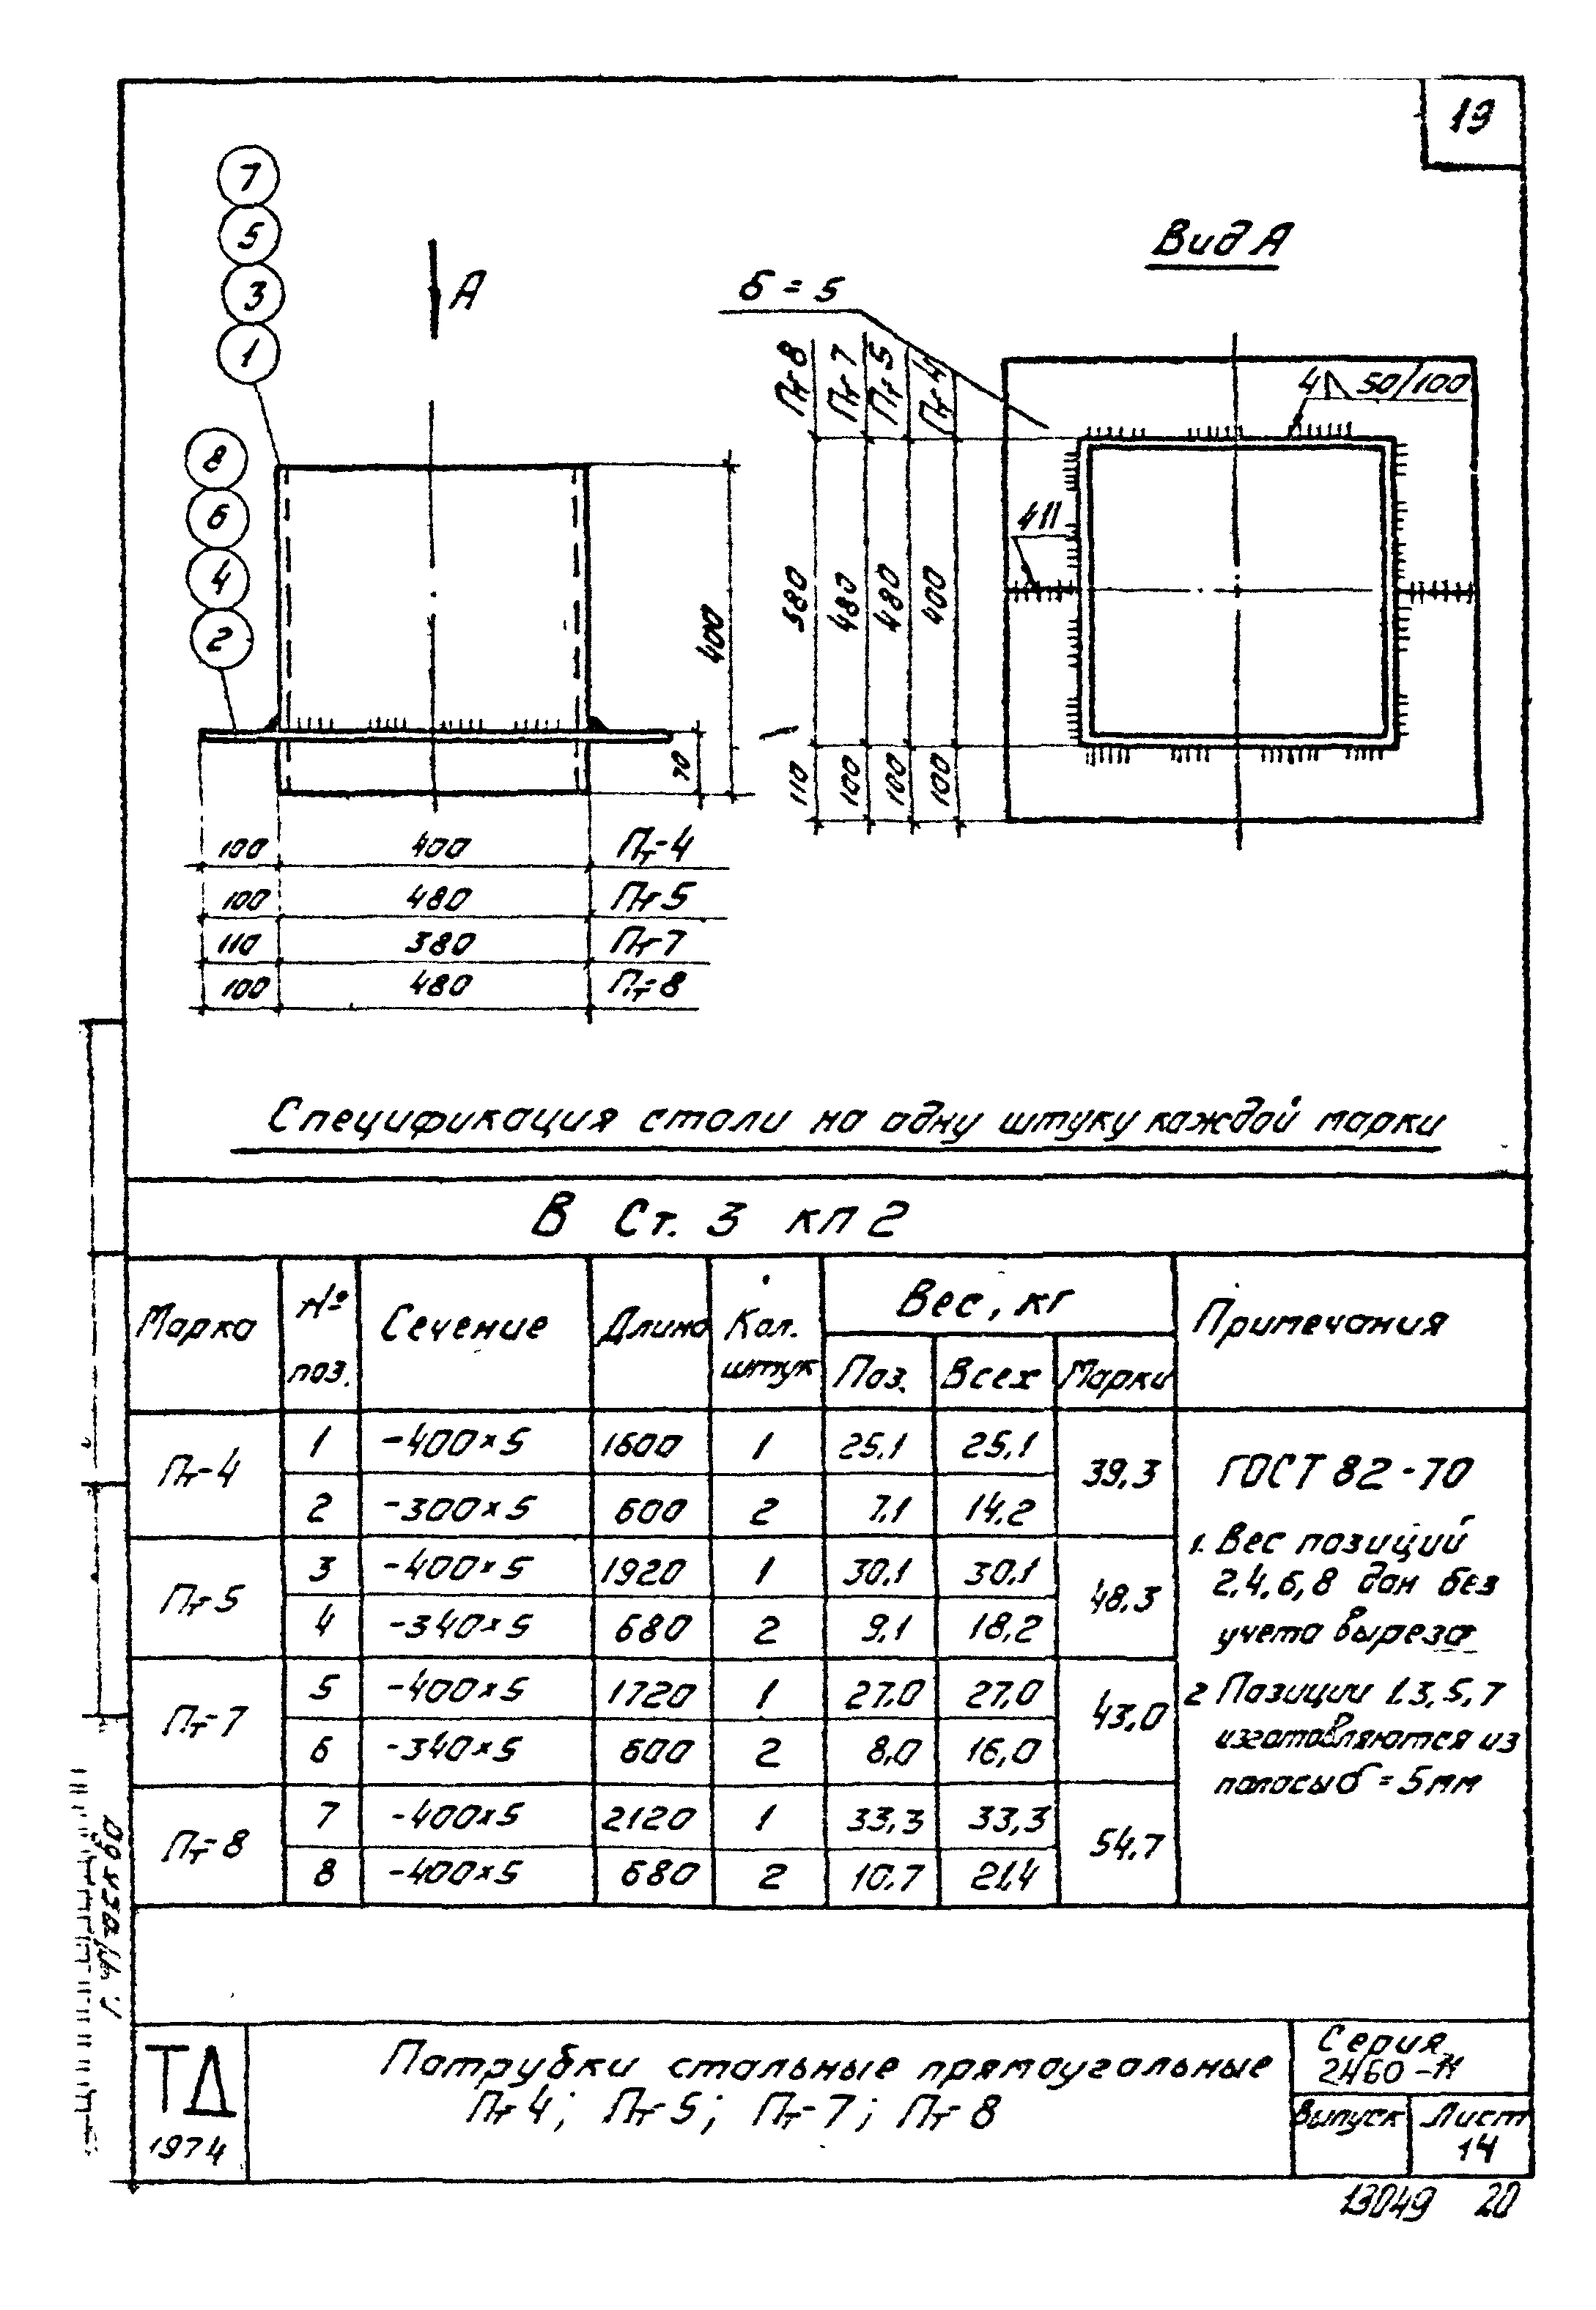 19
7
5
3
1
8
6
4
2
А
Вид А
δ = 5
Пт 8
Пт 7
Пт 5
Пт 4
4 50/100
4
380
480
480
400
110
100
100
100
400
70
100 400 Пт-4
100 480 Пт-5
110 380 Пт-7
100 480 Пт-8
Спецификация стали на одну штуку каждой марки
В Ст. 3 кп 2
Марка № поз. Сечение Длина Кол. штук Вес, кг Примечания
Поз. Всех Марки
Пт-4 1 -400×5 1600 1 25,1 25,1 39,3
2 -300×5 600 2 7,1 14,2
Пт-5 3 -400×5 1920 1 30,1 30,1 48,3
4 -340×5 680 2 9,1 18,2
Пт-7 5 -400×5 1720 1 27,0 27,0 43,0
6 -340×5 600 2 8,0 16,0
Пт-8 7 -400×5 2120 1 33,3 33,3 54,7
8 -400×5 680 2 10,7 21,4
ГОСТ 82-70
1. Вес позиций
2,4,6,8 дан без
учета выреза
2 Позиции 1,3,5,7
изготовляются из
полосы δ = 5мм
ТД
1974
Патрубки стальные прямоугальные
Пт 4; Пт-5; Пт-7; Пт-8
Серия
2.460-11
Выпуск
Лист
14
13049 20